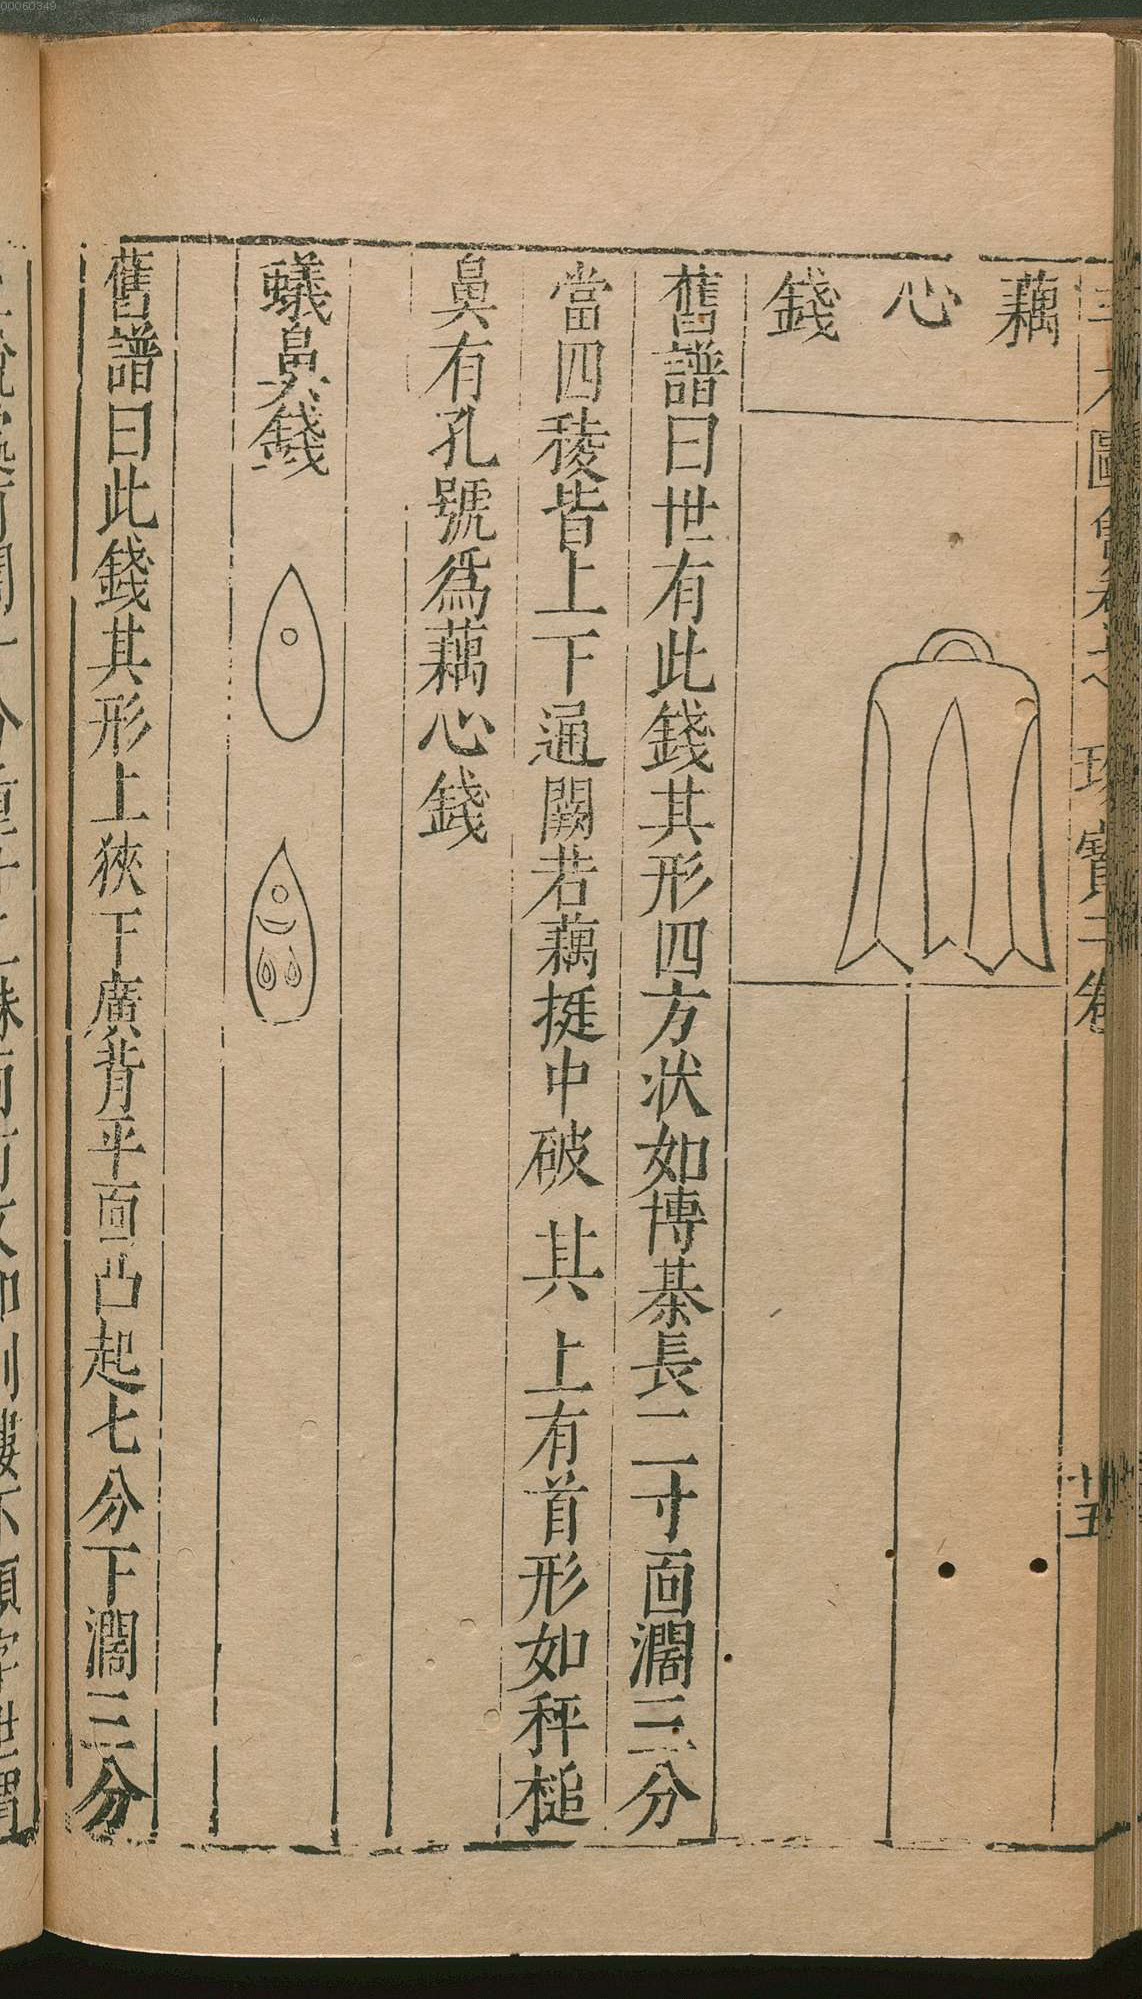 00060349
藕心錢
舊譜曰世有此錢其形四方状如博棊長二寸面濶三分
當四稜皆上下通闕若藕挺中破其上有首形如秤槌
鼻有孔號爲藕心錢
蟻鼻錢
舊譜曰此錢其形上狹下廣背平面凸起七分下濶三分